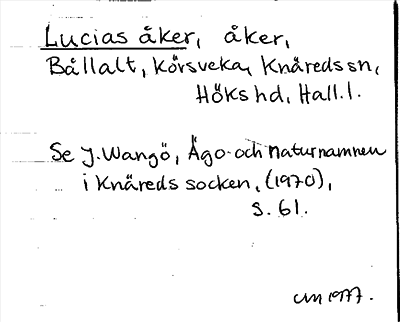 Lucias åker, åker,
Bållalt, Körsveka, Knäreds sn,
Höks hd, Hall. l.
Se J. Wangö, Ägo- och naturnamnen
i Knäreds socken, (1970),
s. 61.
1977.